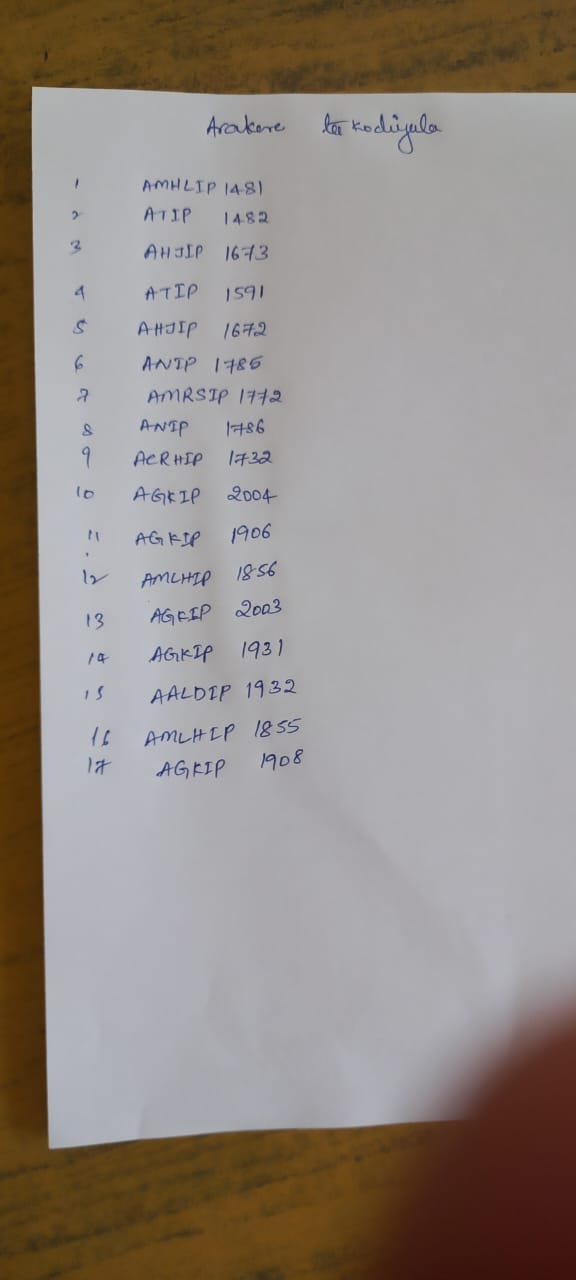 Arakere to kodiyala
1 AMHLIP 1481
2 ATIP 1482
3 AHJIP 1673
4 ATIP 1591
5 AHJIP 1672
6 ANIP 1785
7 AMRSIP 1772
8 ANIP 1786
9 ACRHIP 1732
10 AGKIP 2004
11 AGKIP 1906
12 AMLHIP 1856
13 AGKIP 2003
14 AGKIP 1931
15 AALDIP 1932
16 AMLHIP 1855
17 AGKIP 1908